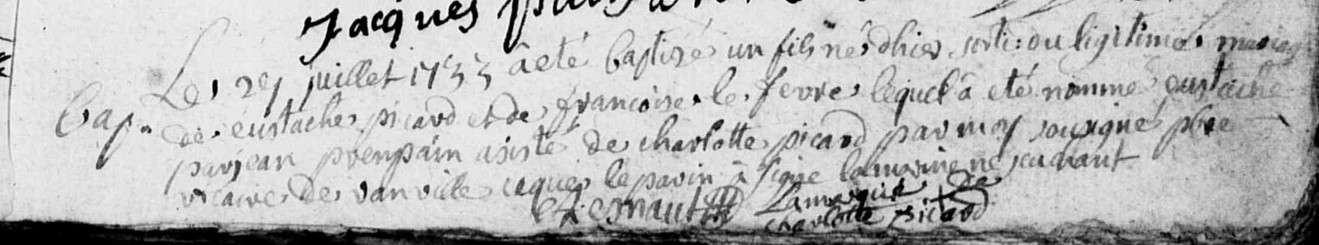 Jacques
Le 29 juillet 1733 a eté baptisé un fils né d'hier sorti ou ligitime mariage
Bap. de eustache picard et de francoise le fevre lequel a eté nommé eustache
par jean prenpain asisté de charlotte picard par moy sousigné pbre
vicaire de vanville ce que le parin a signé la marine ne scachant
La marque de
charlotte picard